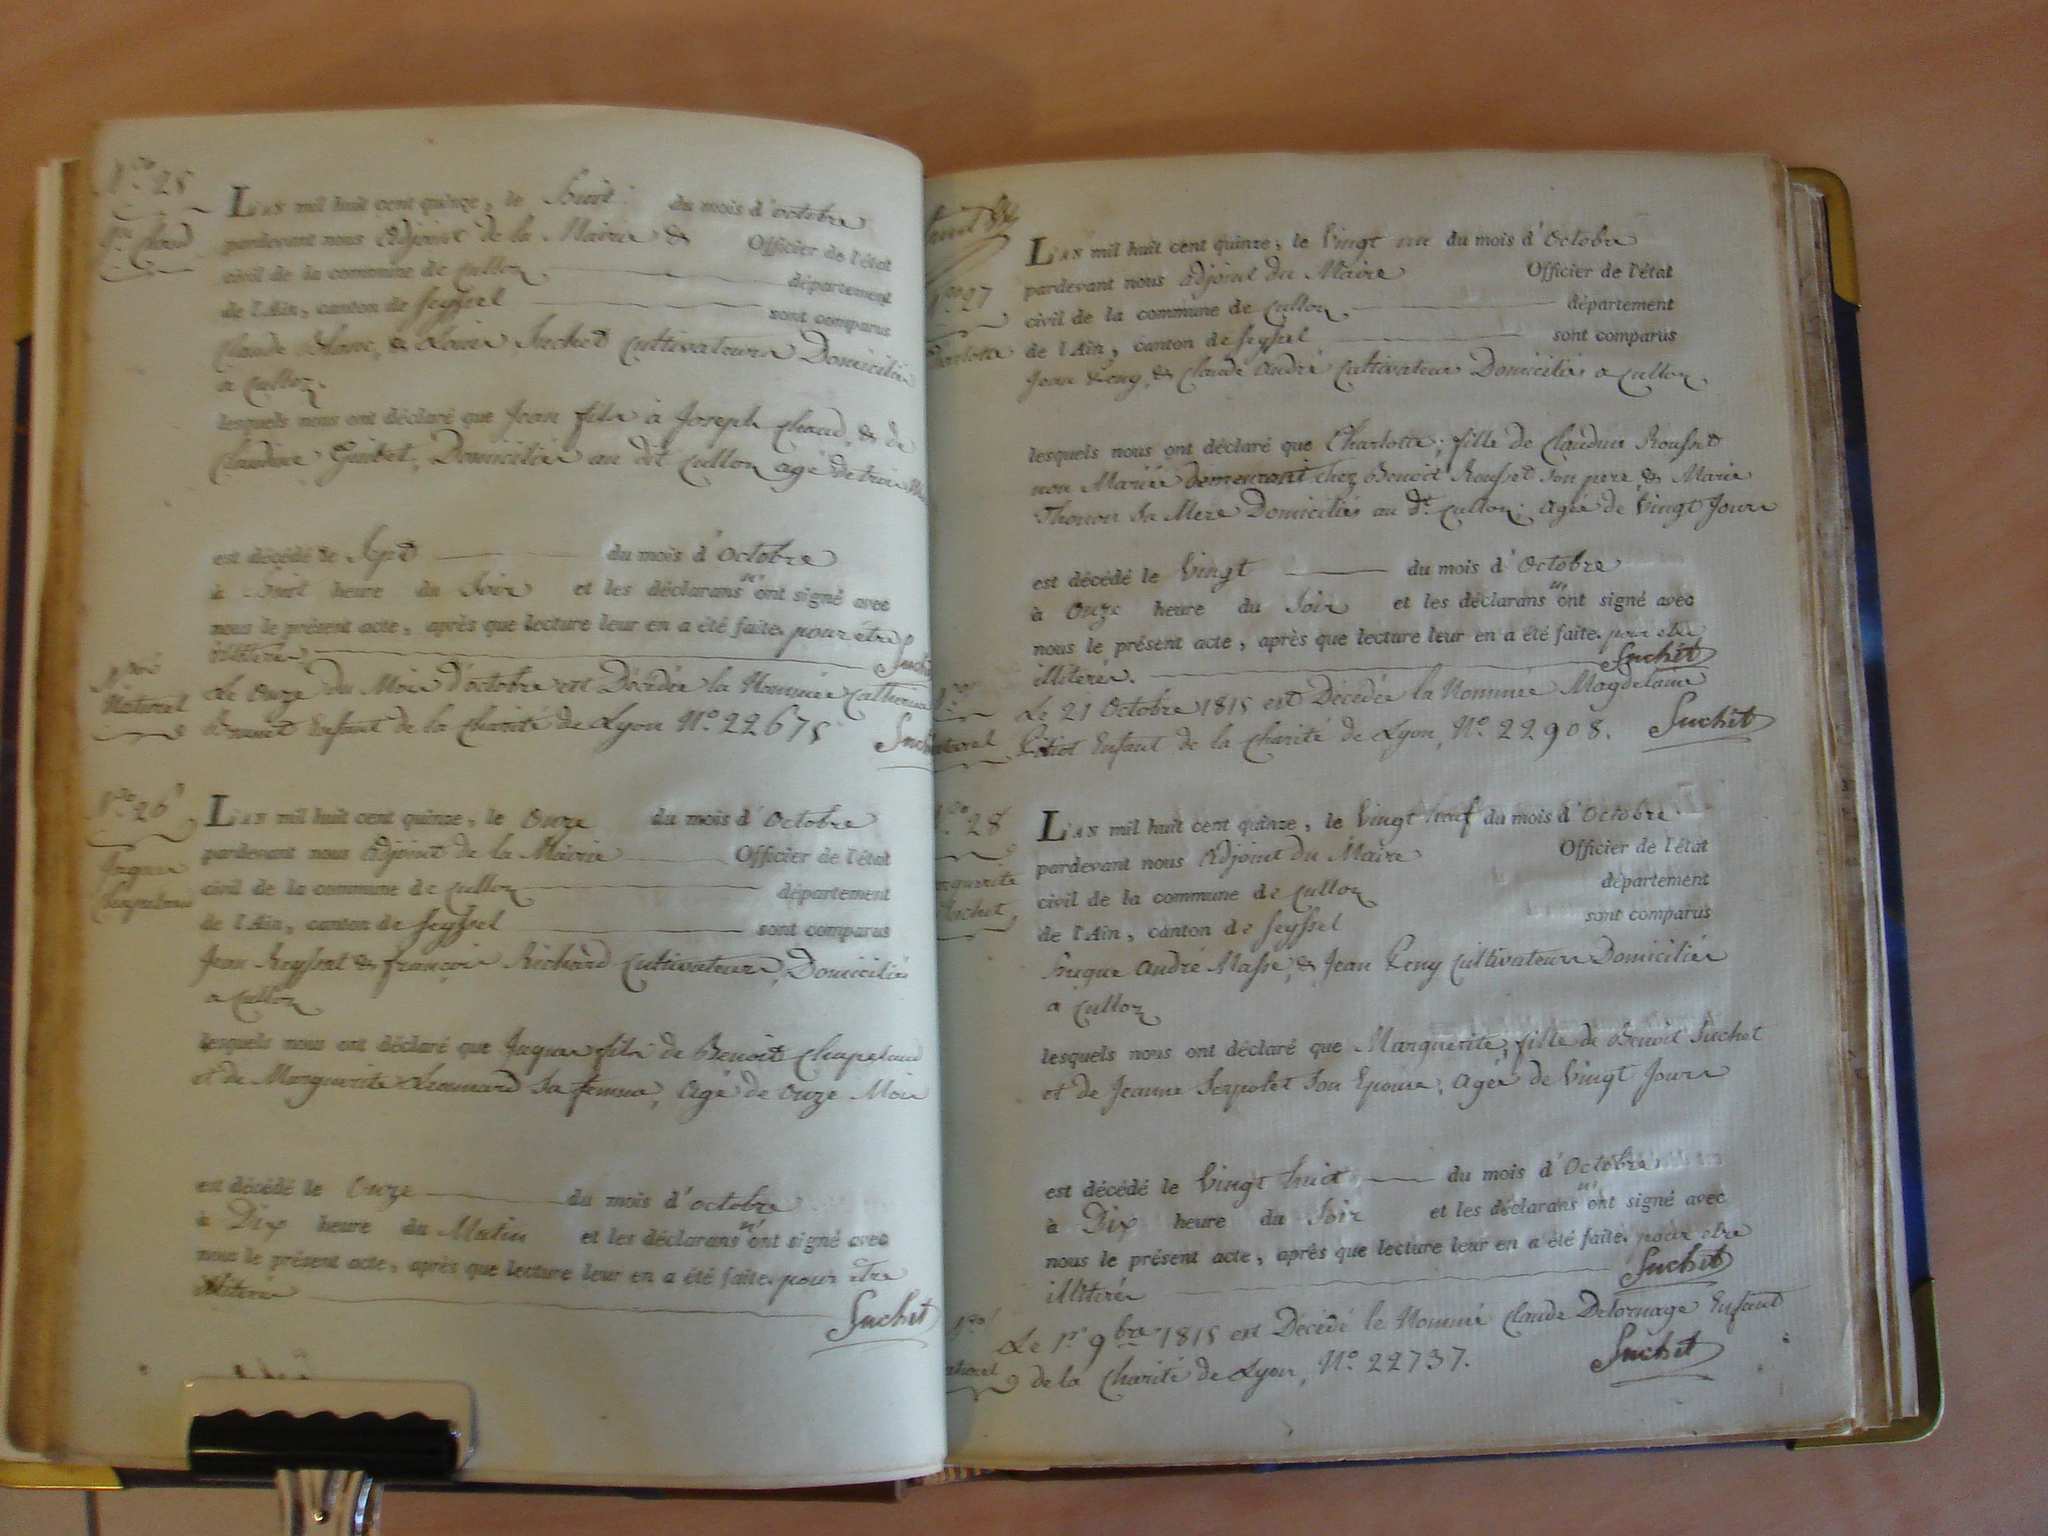 N.º 25
L'AN mil huit cent quinze, le huit du mois d'octobre
pardevant nous Adjoint de la Mairie & Officier de l'état
civil de la commune de Culloz département
de l'Ain, canton de Seyssel sont comparus
Claude Blanc, & Louis Suchet Cultivateurs Domiciliés
a Culloz.
lesquels nous ont déclaré que Jean fils à Joseph Chaud, & de
Claudine Guibet, Domiciliés au dit Culloz agé de trois
est décédé le Sept du mois d'octobre
à huit heure du Soir et les déclarans n' ont signé avec
nous le présent acte, après que lecture leur en a été faite. pour etre
illiterés
Naturel
Le Onze du Mois d'octobre est Décédée la Nommée Catherine
Brunet Enfant de la Charité de Lyon N.º 22675
N.º 26
Chapeland
L'AN mil huit cent quinze, le Onze du mois d'Octobre
pardevant nous Adjoint de la Mairie Officier de l'état
civil de la commune de Culloz département
de l'Ain, canton de Seyssel sont comparus
Jean Reysset & françois Richard Cultivateurs, Domiciliés
a Culloz
lesquels nous ont déclaré que Jaques fils de Benoit Chapeland
et de Marguerite Leonnard sa femme, Agé de Onze Mois
est décédé le Onze du mois d'octobre
à Dix heure du Matin et les déclarans n' ont signé avec
nous le présent acte, après que lecture leur en a été faite. pour etre
illiterés
Suchet
N.º 27
Charlotte
L'AN mil huit cent quinze, le Vingt un du mois d'Octobre
pardevant nous Adjoint du Maire Officier de l'état
civil de la commune de Culloz département
de l'Ain, canton de Seyssel sont comparus
Jean Reny, & Claude André Cultivateurs Domiciliés a Culloz
lesquels nous ont déclaré que Charlotte, fille de Claudine Rousset
non Mariée demeurant chez Benoit Rousset son pere, & Marie
Thonon sa Mere Domiciliés au dt Culloz; agée de Vingt Jours
est décédé le Vingt du mois d'Octobre
à Onze heure du Soir et les déclarans n' ont signé avec
nous le présent acte, après que lecture leur en a été faite. pour etre
illiterés. Suchet
Le 21 Octobre 1815 est Décédée la Nommée Magdelaine
Enfant de la Charité de Lyon, N.º 22908. Suchet
28
Marguerite
Suchet
L'AN mil huit cent quinze, le Vingt neuf du mois d'Octobre
pardevant nous Adjoint du Maire Officier de l'état
civil de la commune de Culloz département
de l'Ain, canton de Seyssel sont comparus
André Masse, & Jean Reny Cultivateurs Domiciliés
a Culloz
lesquels nous ont déclaré que Marguerite, fille de Benoit Suchet
et de Jeanne Serpolet son Epouse, Agée de Vingt Jours
est décédé le Vingt huit du mois d'Octobre
à Dix heure du Soir et les déclarans n' ont signé avec
nous le présent acte, après que lecture leur en a été faite. pour etre
illiterés Suchet
Le 1er 9bre 1815 est Décédé le Nommé Claude Detornage Enfant
de la Charité de Lyon, N.º 22737. Suchet